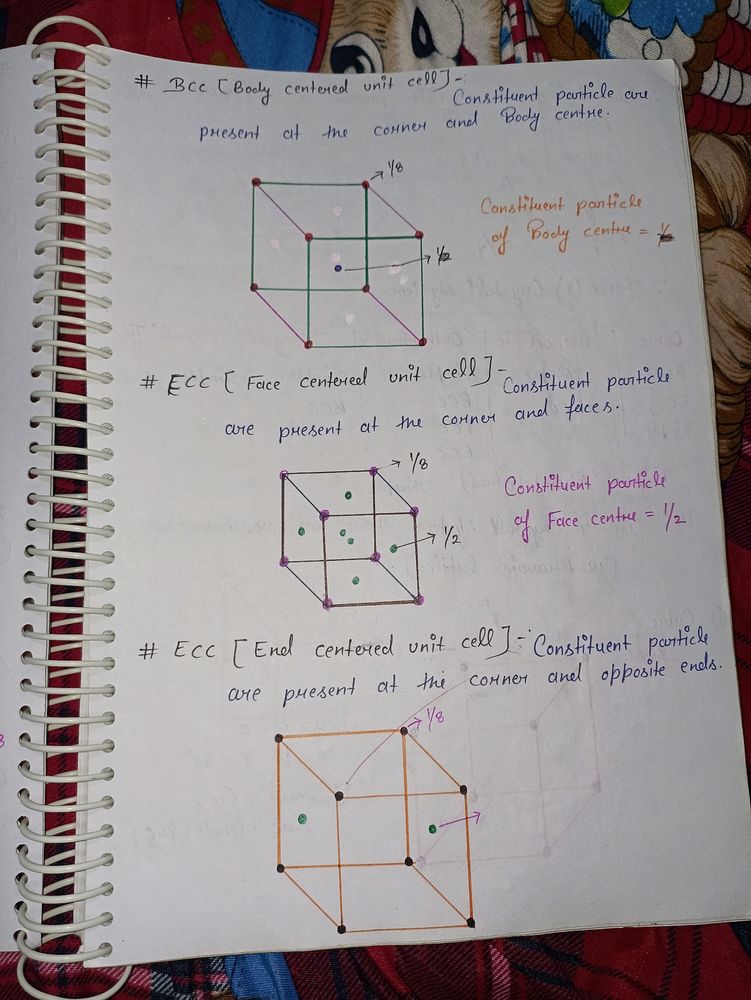 # Bcc [Body centered unit cell]-
Constituent particle are
present at the corner and Body centre.
1/8
Constituent particle
of Body centre =
# ECC [Face centered unit cell]-
Constituent particle
are present at the corner and faces.
1/8
Constituent particle
of Face centre = 1/2
1/2
# ECC [End centered unit cell]-
Constituent particle
are present at the corner and opposite ends.
1/8